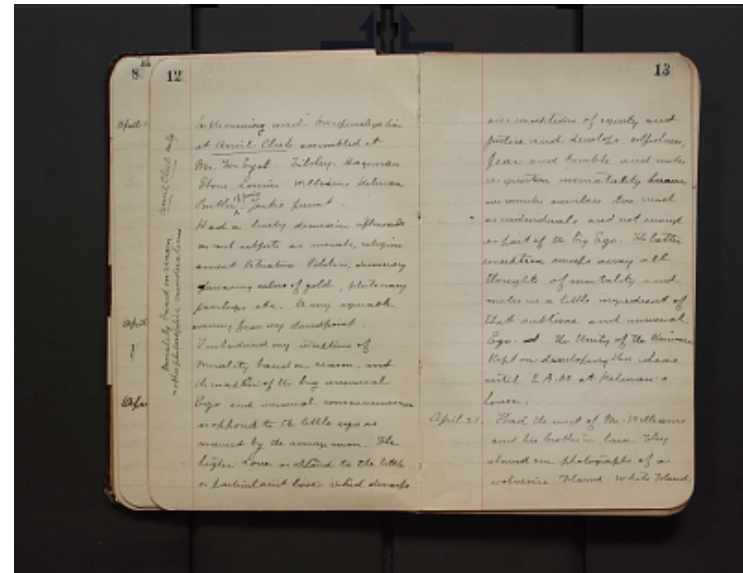 8
12
April
Anvil Club mtg.
Morality based on reason
& other philosophic considerations
In the evening went
at Anvil Club assembled at
Mr. Tilsley. Hageman
Stone Williams Kelman
Butler, Jenks present.
Had a lively discussion afterwards
on such subjects as morals, religion
ancient literature. Politics, democracy
increasing value of gold, plutocracy
privilege etc. A very enjoyable
evening from my standpoint.
I introduced my
morality based on reason, and
the of the big universal
Ego and universal consciousness
as opposed to the little ego as
viewed by the average man. The
higher Love as opposed to the little
or particularist love which dwarfs
13
our conception of equity and
justice and develops selfishness,
fear and and makes
us question immortality because
we consider ourselves too much
as individuals and not enough
a part of the big Ego. The latter
conception sweeps away all
thoughts of mortality and
makes us a little ingredient of
that sublime and universal
Ego. the Unity of the Universe
Kept on developing these ideas
until 2 A.M at Kelman's
house.
April 23. Had the visit of Mr. Williams
and his brother in law. They
showed me photographs of a
Island White Island,